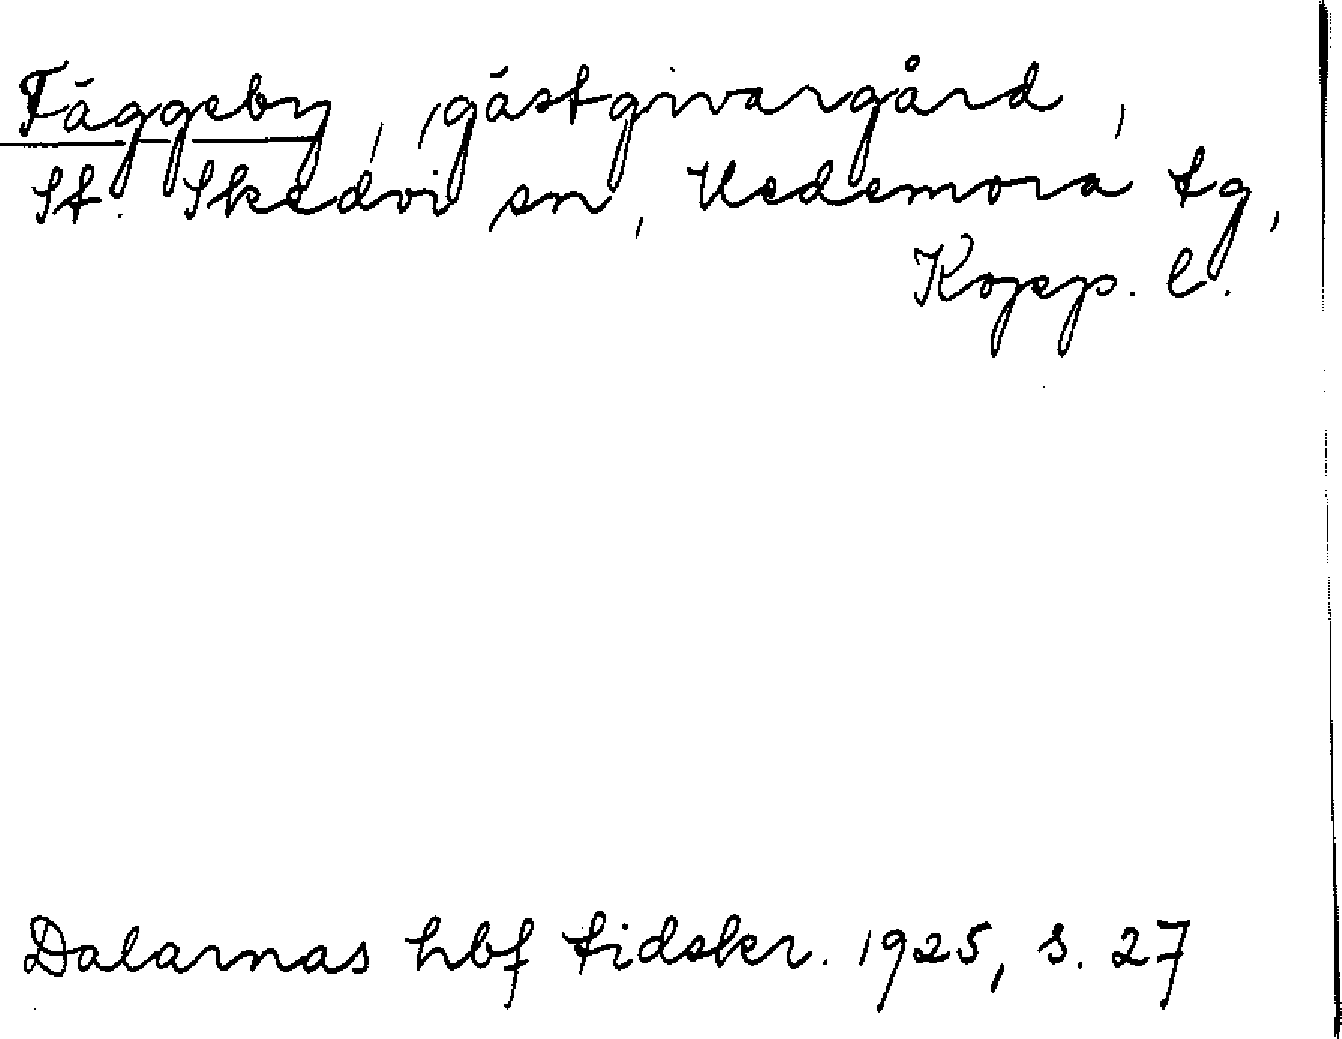 Fäggeby, gästgivargård,
St. Skedvi sn, Hedemora tg,
Kopp. l.
Dalarnas hbf tidskr. 1925, s. 27